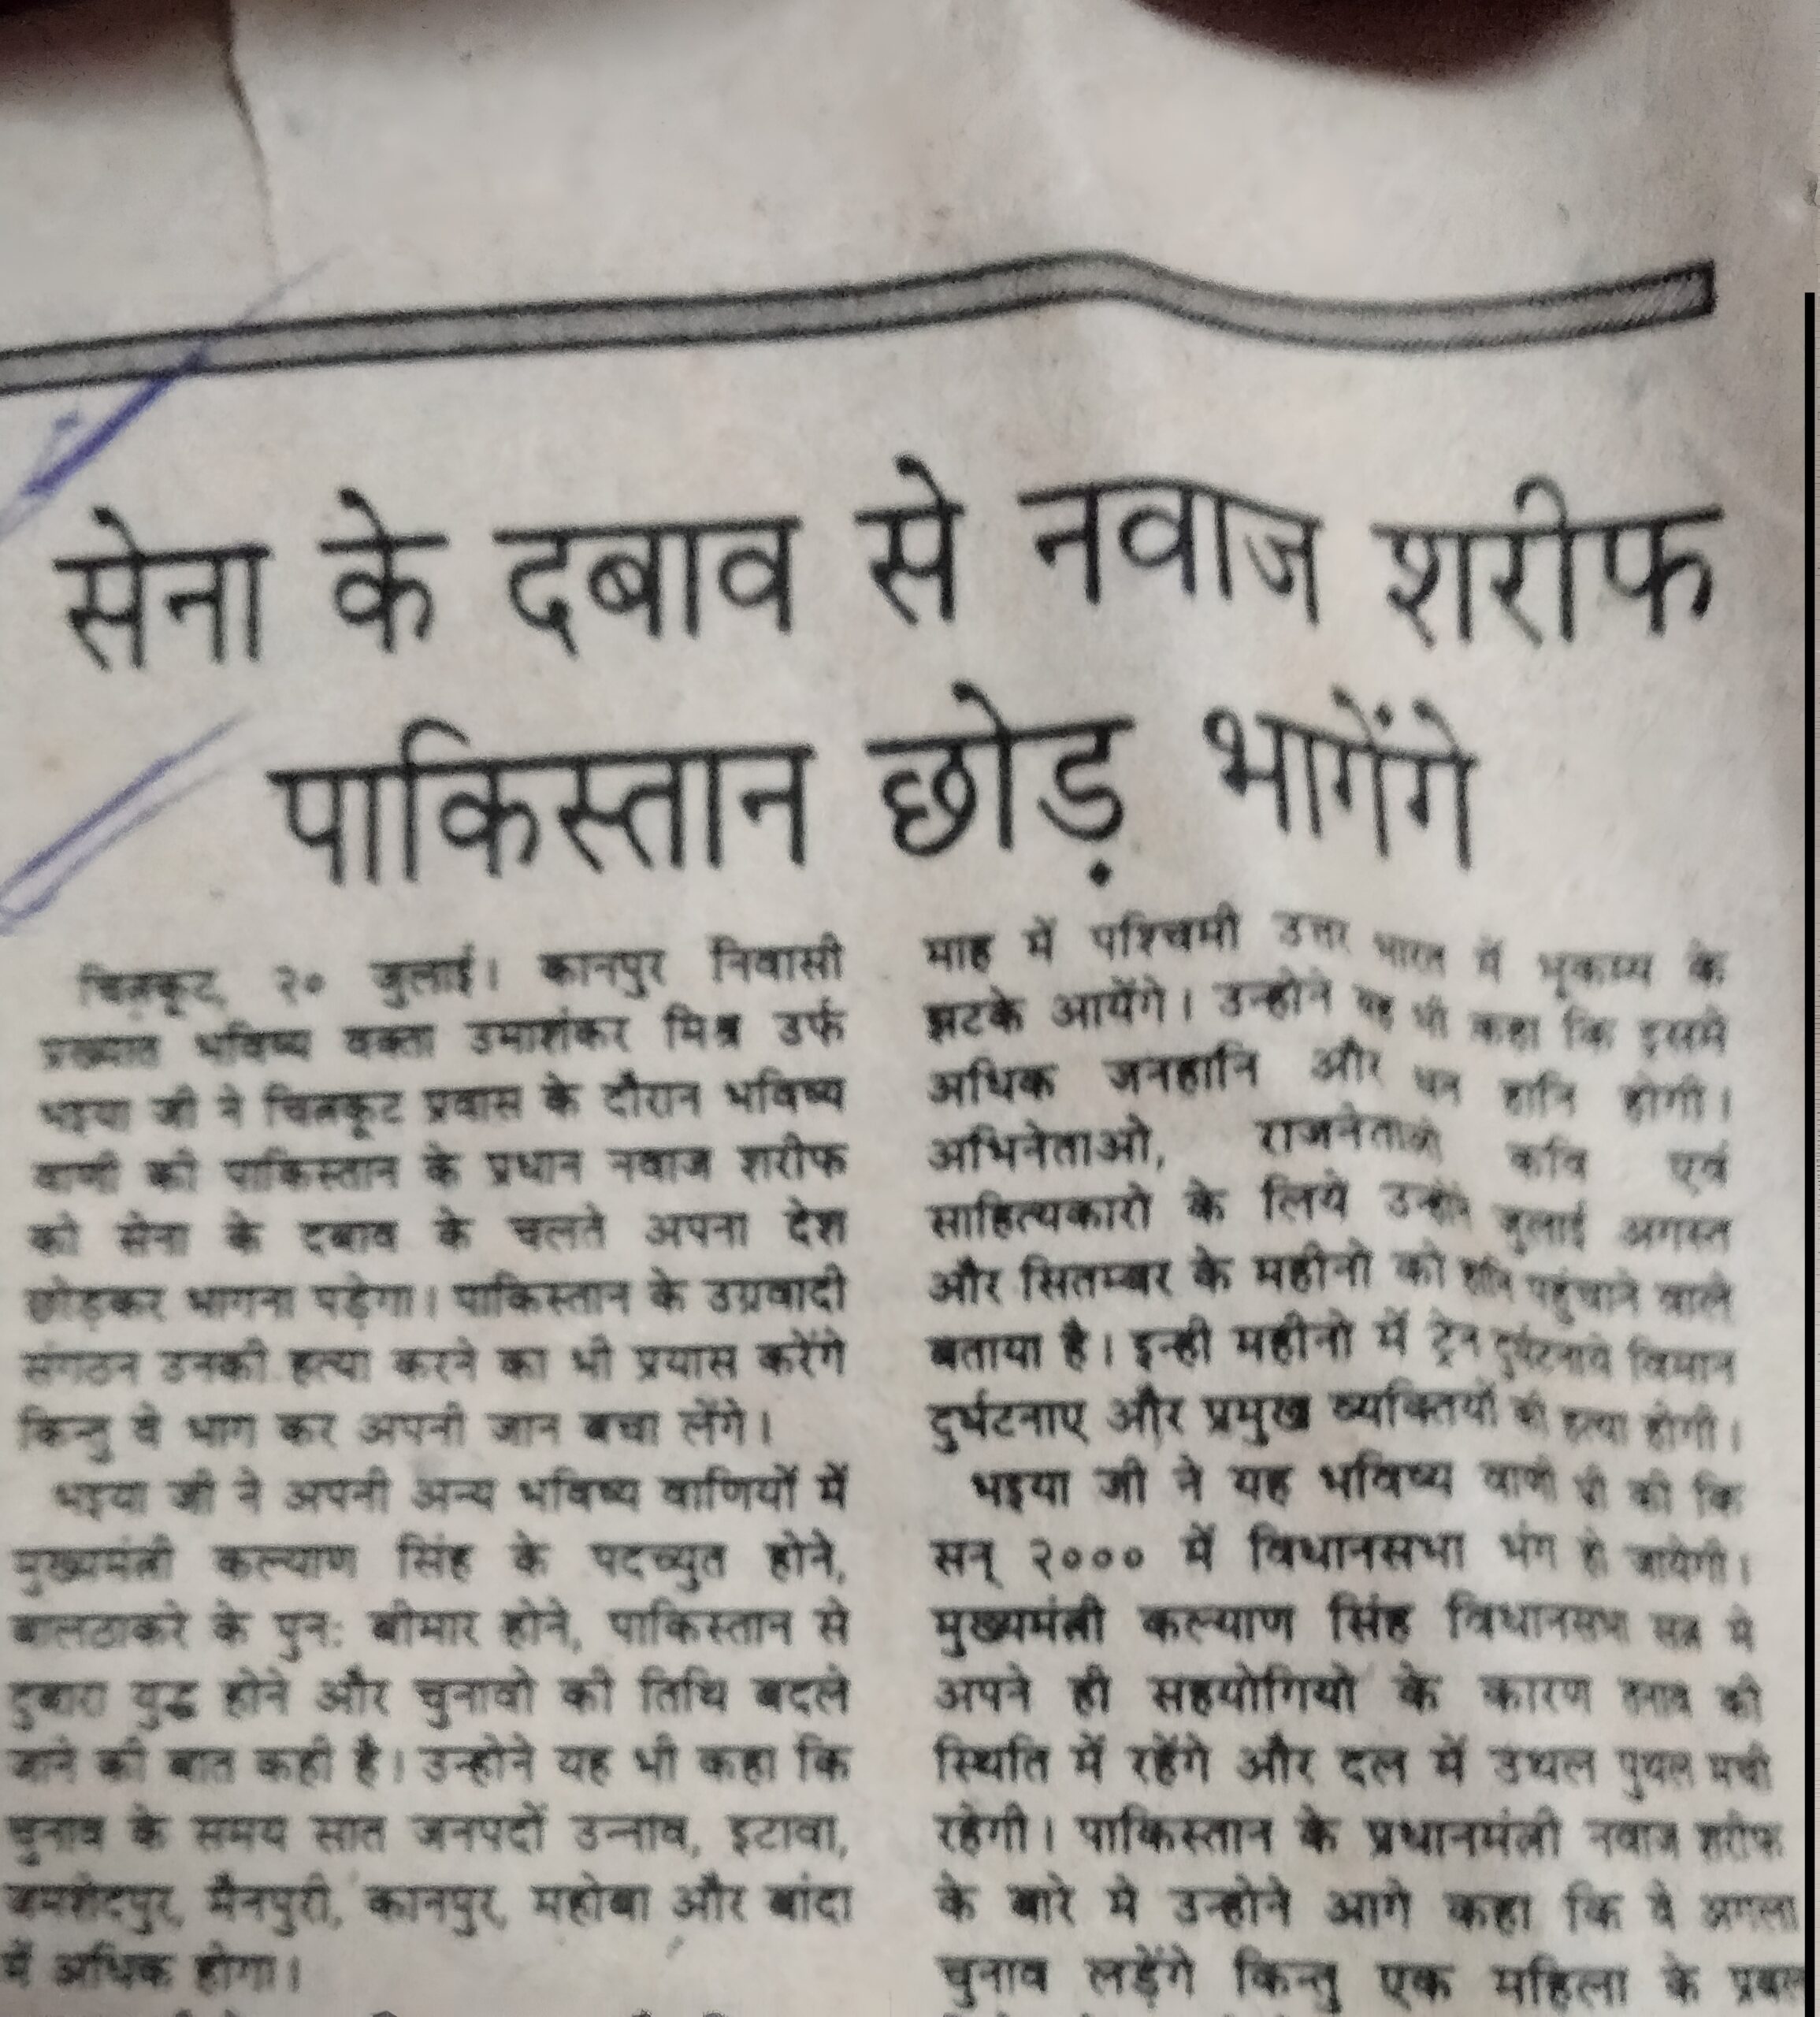 सेना के दबाव से नवाज शरीफ
पाकिस्तान छोड़ भागेंगे
चित्रकूट, २० जुलाई। कानपुर निवासी
प्रख्यात भविष्य वक्ता उमाशंकर मिश्र उर्फ
भइया जी ने चित्रकूट प्रवास के दौरान भविष्य
वाणी की पाकिस्तान के प्रधान नवाज शरीफ
को सेना के दबाव के चलते अपना देश
छोड़कर भागना पड़ेगा। पाकिस्तान के उग्रवादी
संगठन उनकी हत्या करने का भी प्रयास करेंगे
किन्तु वे भाग कर अपनी जान बचा लेंगे।
भइया जी ने अपनी अन्य भविष्य वाणियों में
मुख्यमंत्री कल्याण सिंह के पदच्युत होने,
बालठाकरे के पुनः बीमार होने, पाकिस्तान से
दुबारा युद्ध होने और चुनावो की तिथि बदले
जाने की बात कही है। उन्होने यह भी कहा कि
चुनाव के समय सात जनपदों उन्नाव, इटावा,
मैनपुरी, कानपुर, महोबा और बांदा
में अधिक होगा।
माह में पश्चिमी उत्तर भारत में भूकम्प के
झटके आयेंगे। उन्होने यह भी कहा कि इसमे
अधिक जनहानि और धन हानि होगी।
अभिनेताओ, राजनेताओ कवि एवं
साहित्यकारो के लिये उन्होने जुलाई अगस्त
और सितम्बर के महीनो को हानि पहुंचाने वाले
बताया है। इन्ही महीनो में ट्रेन दुर्घटनाये विमान
दुर्घटनाए और प्रमुख व्यक्तियों की हत्या होगी।
भइया जी ने यह भविष्य वाणी भी की कि
सन् २००० में विधानसभा भंग हो जायेगी।
मुख्यमंत्री कल्याण सिंह विधानसभा सत्र मे
अपने ही सहयोगियो के कारण तनाव की
स्थिति में रहेंगे और दल में उथल पुथल मची
रहेगी। पाकिस्तान के प्रधानमंत्री नवाज शरीफ
के बारे मे उन्होने आगे कहा कि वे अगला
चुनाव लड़ेंगे किन्तु एक महिला के प्रबल